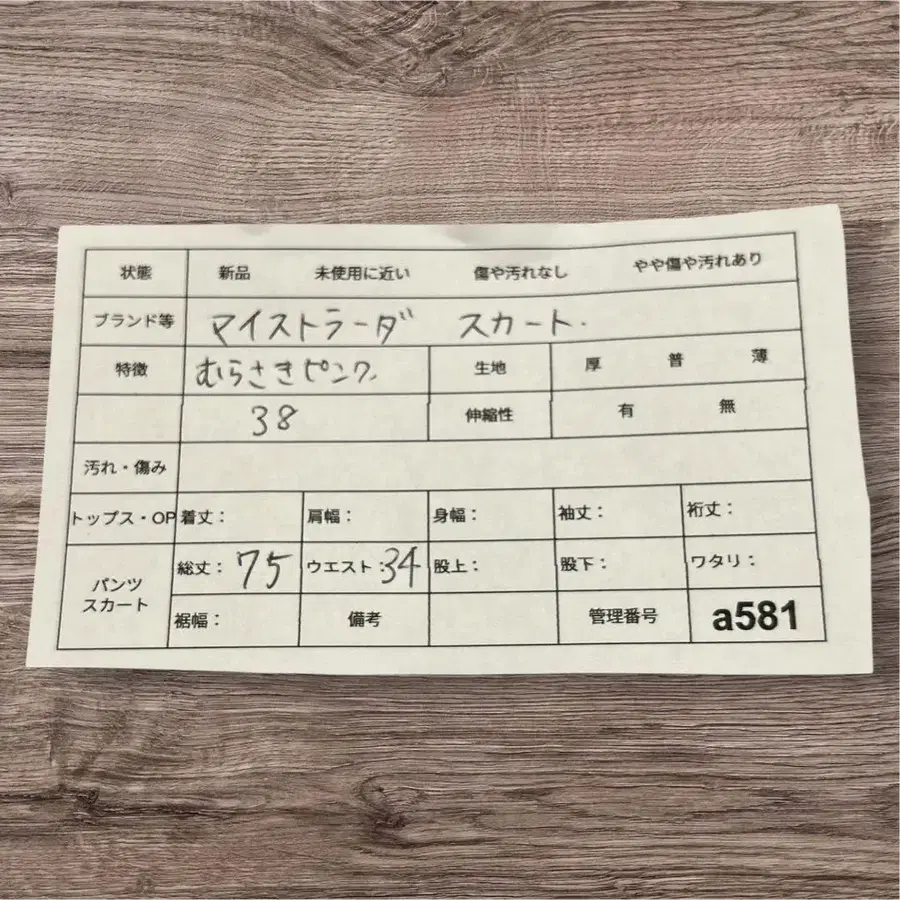 状態 新品 未使用に近い 傷や汚れなし やや傷や汚れあり
ブランド等 マイストラーダ スカート.
特徴 むらさきピンク. 生地 厚 普 薄
38 伸縮性 有 無
汚れ・傷み
トップス・OP 着丈: 肩幅: 身幅: 袖丈: 裄丈:
パンツ スカート 総丈:75 ウエスト:34 股上: 股下: ワタリ:
裾幅: 備考 管理番号 a581